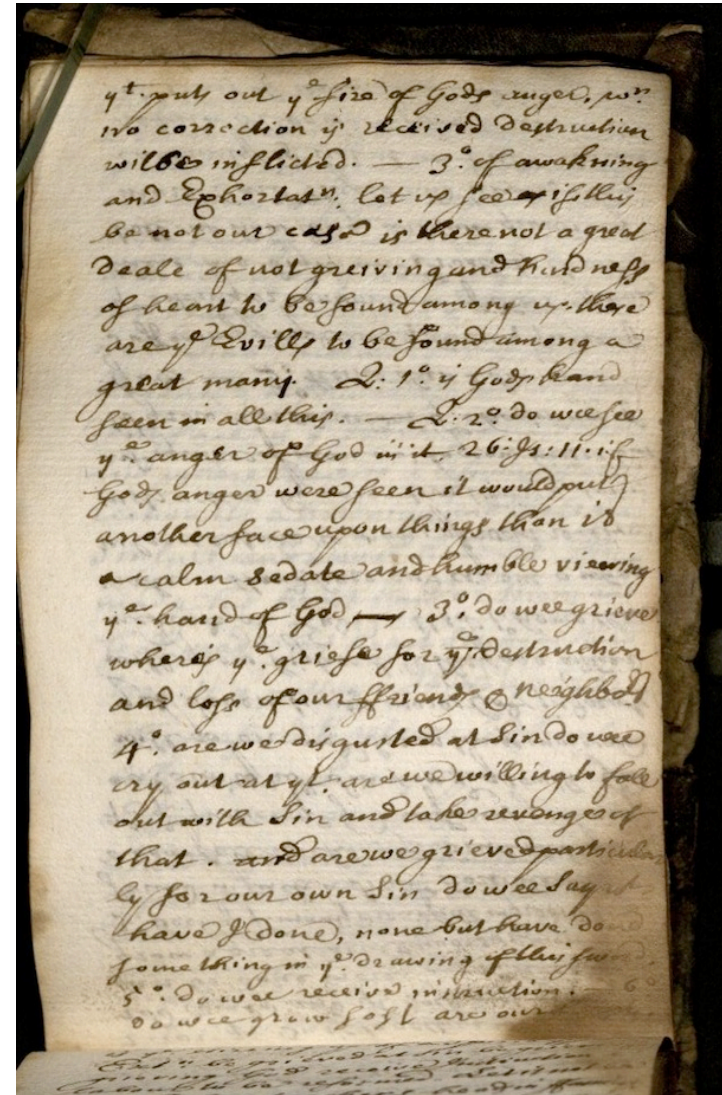 yt. puts out ye fire of Gods anger. wn.
no correction is received Destruction
wilbe inflicted. — 3o. of awakning
and Exhortatn. let us see if this
be not our case is there not a great
deale of not greiving and hardness
of heart to be found among us. there
are ys Evills to be found among a
great many. Q: 1o. is Gods hand
seen in all this. — Q: 2o. do wee see
ye. anger of God in it 26: Is: 11. if
Gods anger were seen it would put
another face upon things than is
a calm sedate and humble viewing
ye. hand of God — 3o. do wee grieve
where is ye. griefe for ye. destruction
and loss of our ffriends & neighbors
4o. are wee disgusted at Sin do wee
cry out at yt. are we willing to fall
out with Sin and take revenge of
that. and are we grieved particular
ly for our own Sin do wee say
have I done, none but have done
something in ye. drawing of this sword.
5o. do wee receive instruction. — 6o
do wee grow soft are our